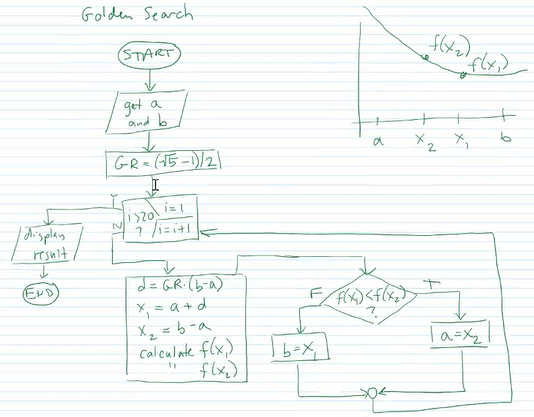 Golden Search
START
get a
and b
GR = (√5 - 1)/2
Y
i>20
?
i=1
i=i+1
N
display
result
END
d = GR·(b-a)
x₁ = a + d
x₂ = b - a
calculate f(x₁)
" f(x₂)
F
f(x₁) < f(x₂)
?
T
b = x₁
a = x₂
f(x₂)
f(x₁)
a
x₂
x₁
b